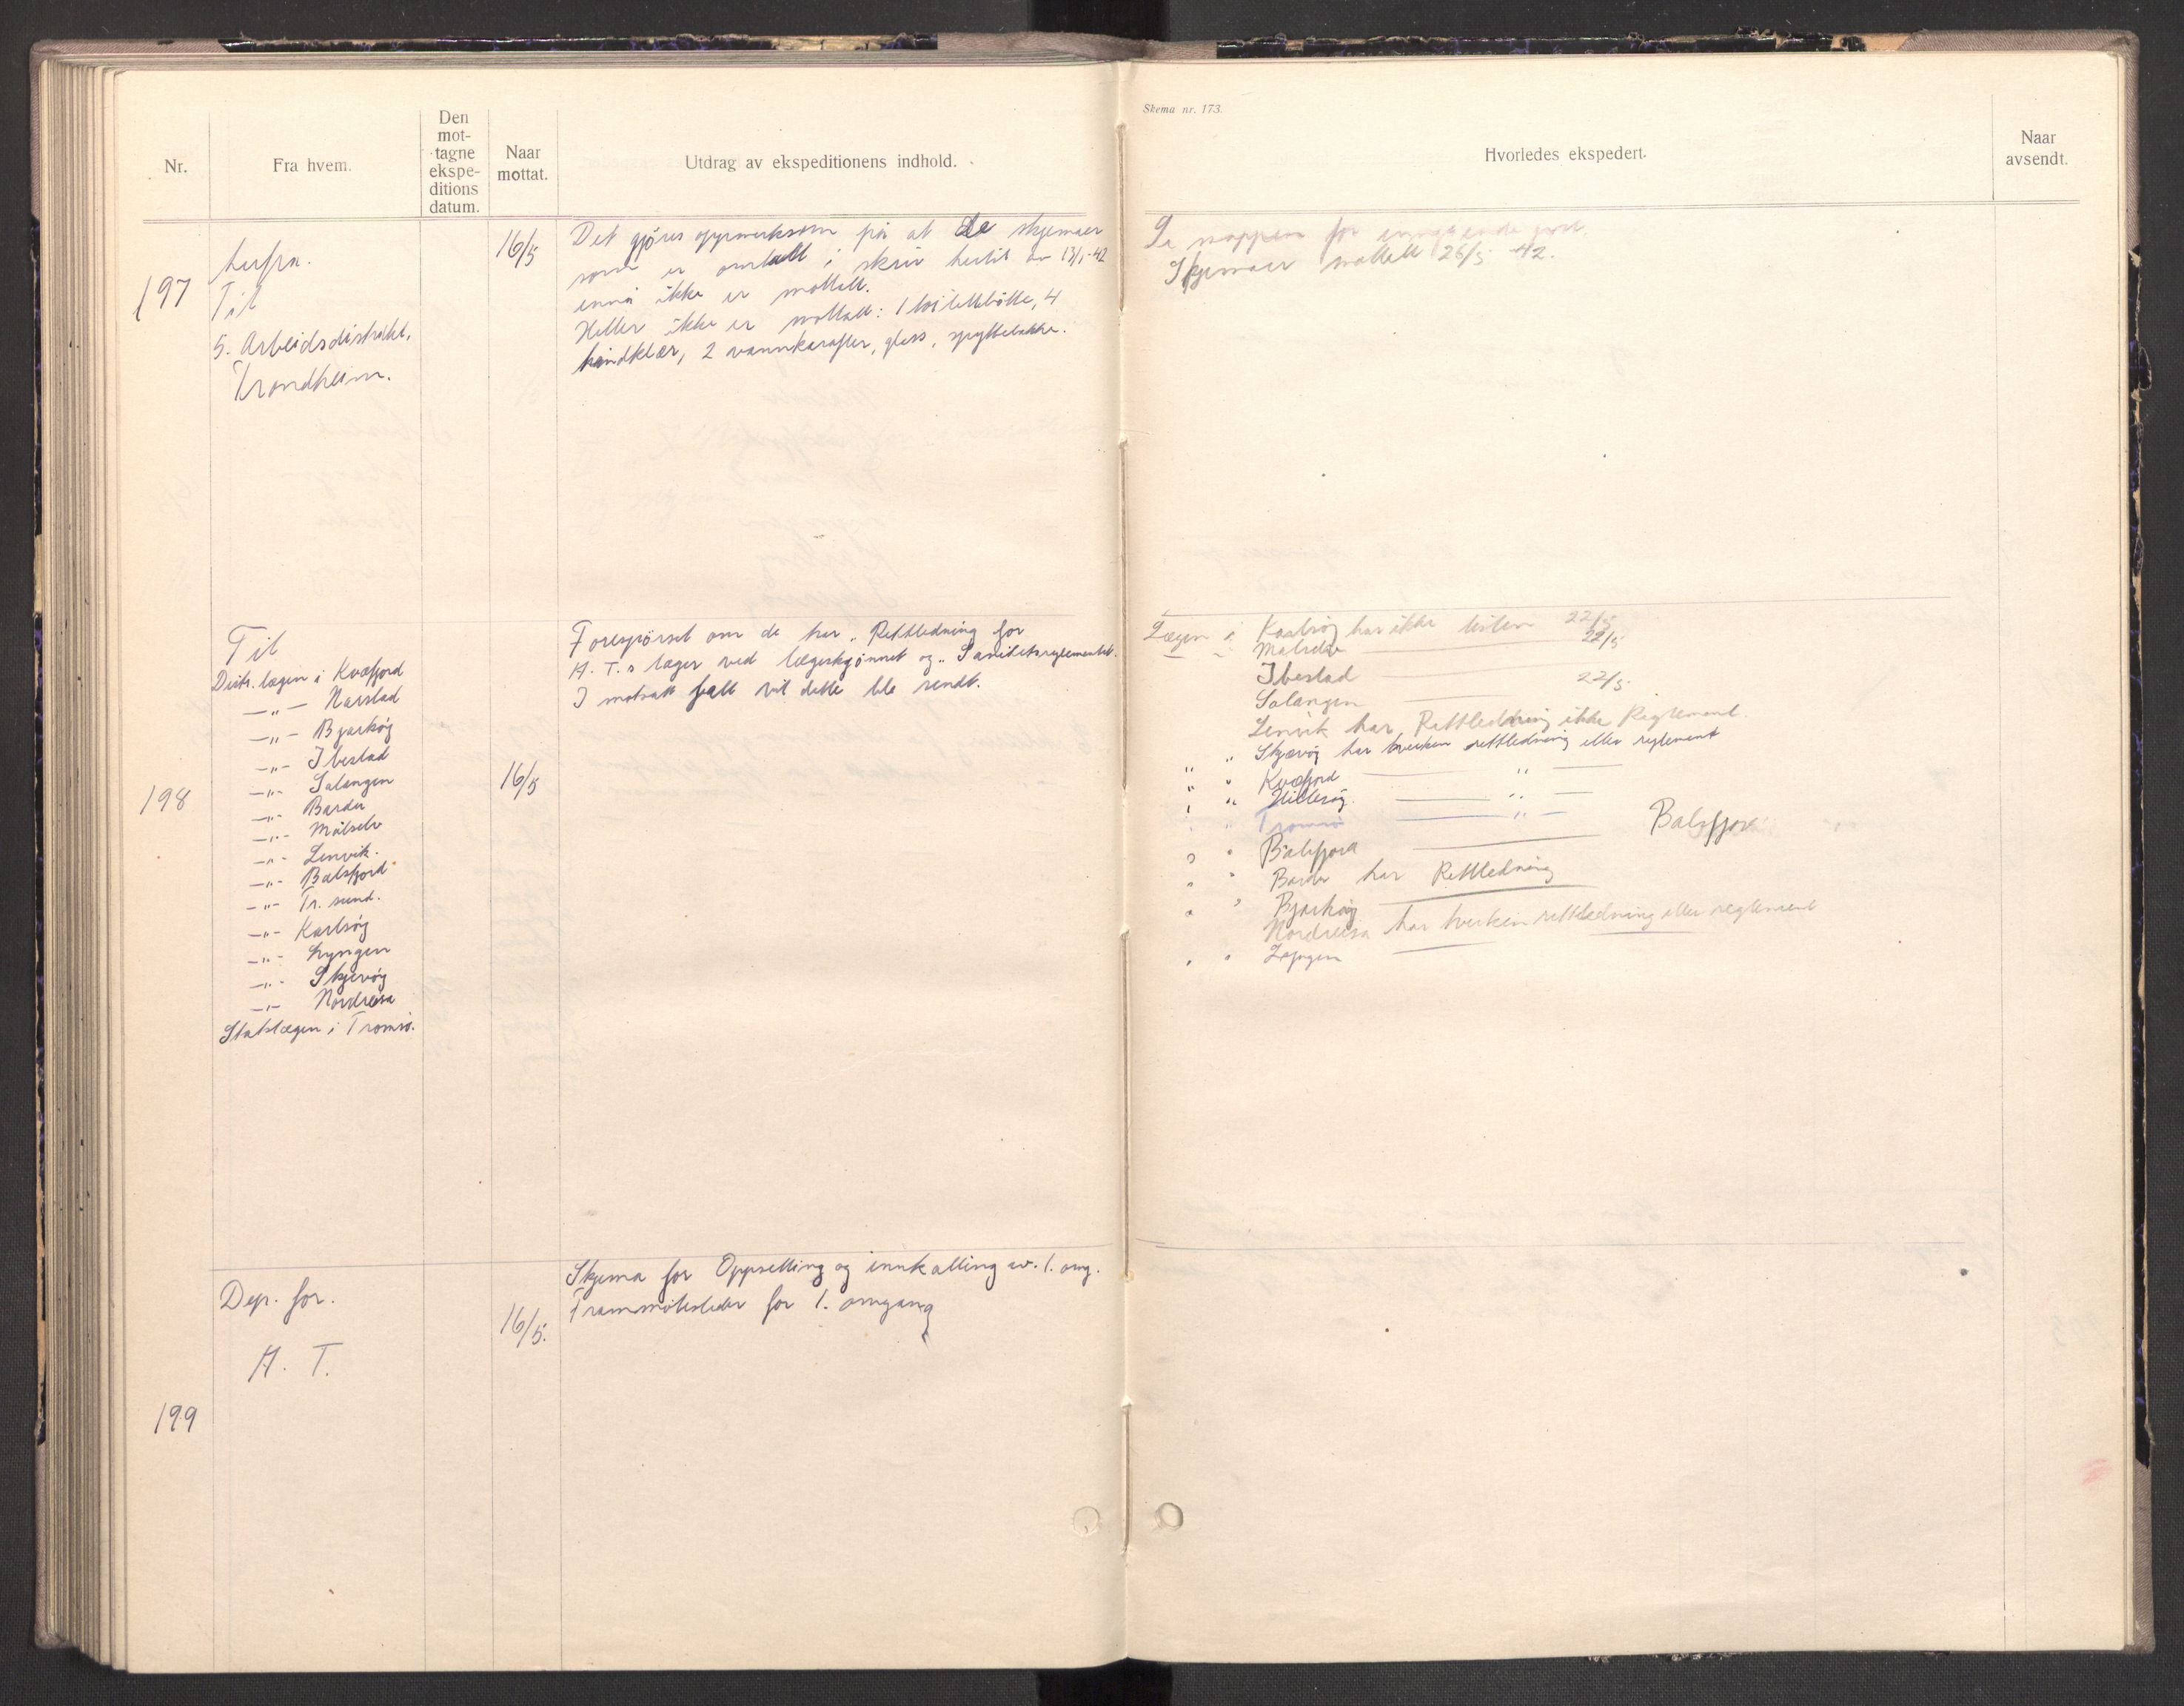 Nr.
Fra hvem.
Den
mot-
tagne
ekspe-
ditions
datum.
Naar
mottat.
Utdrag av ekspeditionens indhold.
197
herfra.
Til
5. Arbeidsdistrikt,
Trondheim.
16/5
Det gjöres oppmerksom på at de skjemaer
som er omtalt i skriv hertil av 13/5-42
ennå ikke er mottatt.
Heller ikke er mottatt: 1 toilettbötte, 4
håndklær, 2 vannkarafler, glass, spyttebakke.
198
Til
Distr. lægen i Kvæfjord
—„— Harstad
—„— Bjarköy
—„— Ibestad
—„— Salangen
—„— Bardu
—„— Målselv
—„— Lenvik.
—„— Balsfjord
—„— Tr. sund.
—„— Karlsöy
—„— Lyngen
—„— Skjervöy
—„— Nordreisa
Statslægen i Tromsö.
16/5
Forespörsel om de har „Rettledning for
A. T.s læger ved lægeskjönnet og „Sanitetsreglementet.
I motsatt fall vil dette bli sendt.
199
Dep. for.
A. T.
16/5.
Skjema for Oppsetting og innkalling av 1. omg.
Frammötesteder for 1. omgang
Skema nr. 173.
Hvorledes ekspedert.
Naar
avsendt.
Se mappen for inngående post.
Skjemaer mottatt 26/5 -42.
Lægen i Karlsöy har ikke listen 22/5
Målselv — 22/5
Ibestad — 22/5
Salangen —
Lenvik har Rettledning ikke Reglement.
„ „ Skjervöy har hverken rettledning eller reglement
„ „ Kvæfjord — „ —
„ „ Hillesöy. — „ —
„ „ Tromsö — „ —
„ „ Balsfjord — Balsfjord
„ „ Bardu har Rettledning
„ „ Bjarköy —
Nordreisa har hverken rettledning eller reglement
„ „ Lyngen —